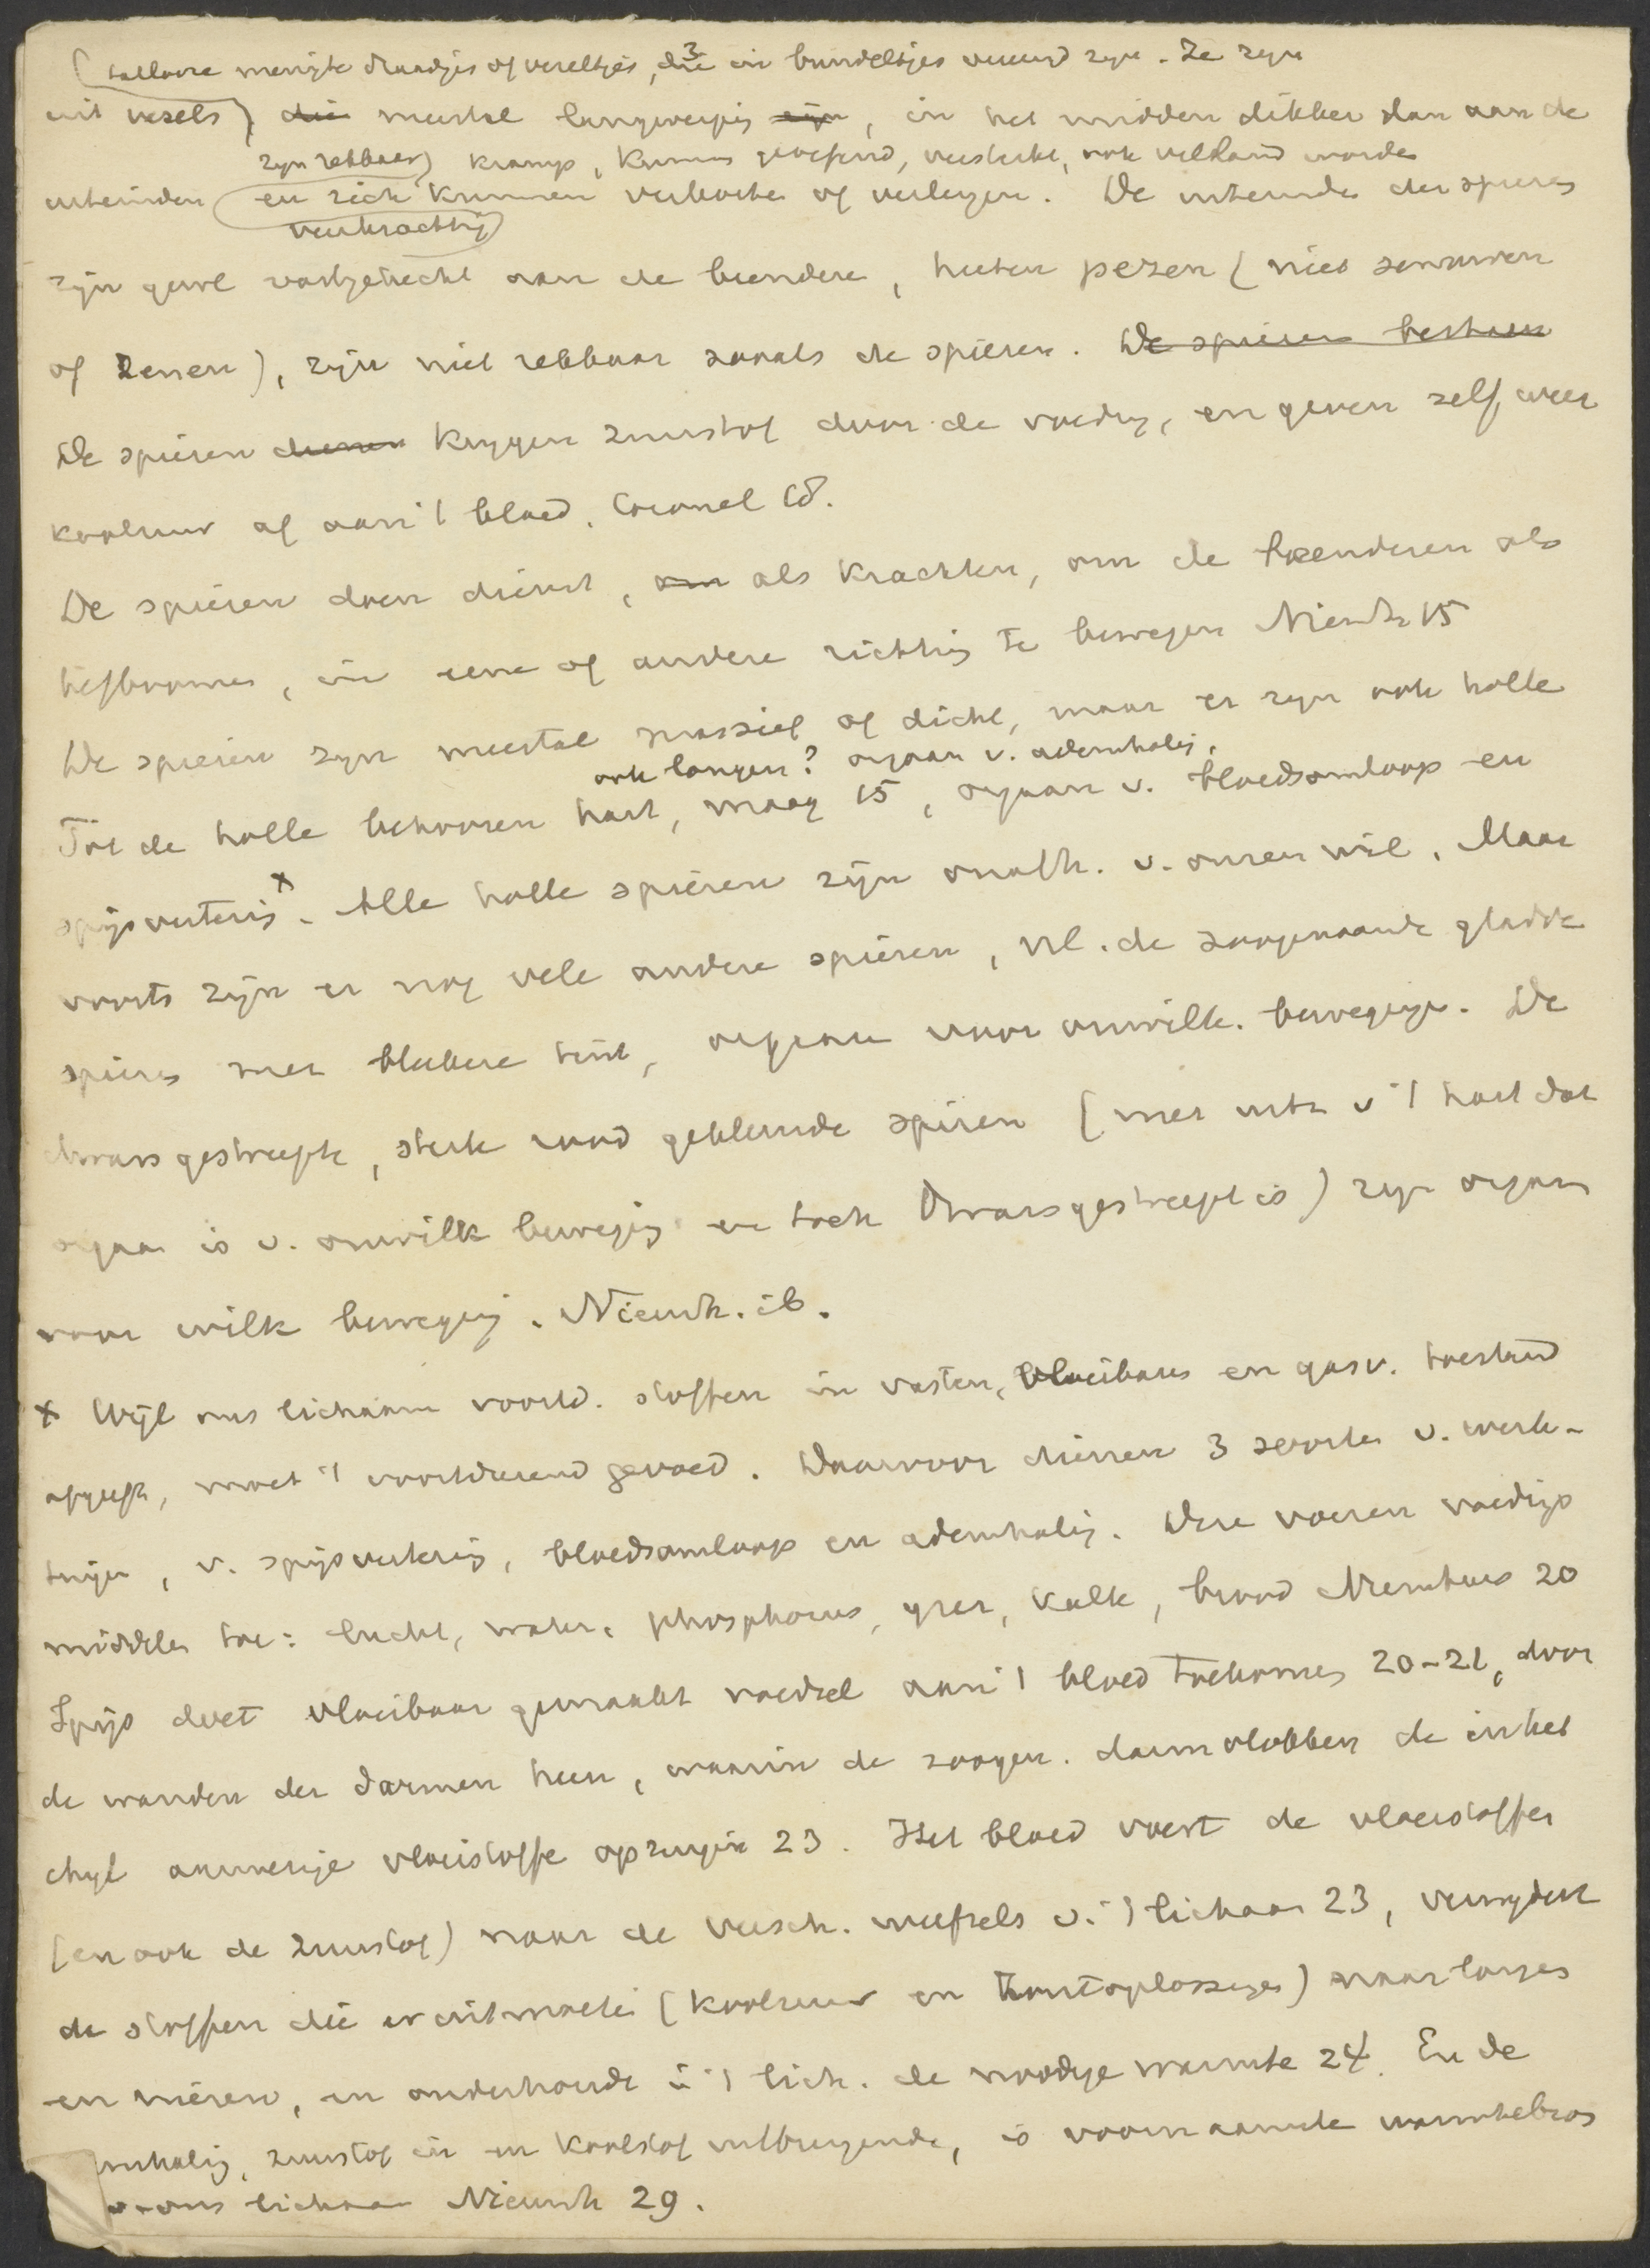 (tallooze menigte draadjes of vezeltjes, die in bundeltjes vereend zyn. Ze zyn
uit vezels) die meestal langwerpig zijn, in het midden dikker dan aan de
zyn rekbaar) kramp, kunnen geoefend, versterkt, ook verlamd worden
uiteinden (en zich kunnen verkorten of verlengen. De uiteinden der spieren
veerkrachtig)
zijn gewl vastgehecht aan de beendere, heeten pezen (niet zenuwen
of zenen), zijn niet rekbaar zooals de spieren. De spieren bestaan
De spieren dienen krygen zuurstof door de voedng, en geven zelf weer
koolzuur af aan 't bloed. Coronel 18.
De spieren doen dienst, om als krachten, om de beenderen als
hefboomen, in eene of andere richting te bewegen Nieuwh 15
De spieren zyn meestal massief of dicht, maar er zyn ook holle
ook longen? orgaan v. ademhalig,
Tot de holle behooren hart, maag 15, orgaan v. bloedsomloop en
spijsverterig x. Alle holle spieren zijn onafh. v. onzen wil. Maar
voorts zijn er nog vele andere spieren, nl. de zoogenaamde gladde
spieren met bleekere tint, organen voor onwillk. bewegingn. De
dwars gestreepte, sterk rood gekleurde spiren (met uitz v 't hart dat
orgaan is v. onwillk beweging en toch dwarsgestreept is) zyn organ
voor wilk beweging. Nieuwh. ib.
x Wijl ons lichaam voortd. stoffen in vasten, vloeibaren en gasv. toestand
afgeeft, moet 't voortdurend gevoed. Daarvoor dienen 3 soorten v. werk-
tuign, v. spijsverterig, bloedsomloop en ademhalig. Deze voeren voedings
middelen toe: lucht, water, phosphorus, yzer, kalk, brood Nieuwhuis 20
Spijs doet vloeibaar gemaakt voedsel aan 't bloed toekomen 20-21, door
de wanden der darmen heen, waarin de zoogen. darmvlokken de in het
chyl aanwezige vloeistoffe opzuign 23. Het bloed voert de vloeistoffen
(en ook de zuurstof) naar de versch. weefsels v. 't lichaam 23, verwydert
de stoffen die er uit moeten (koolzuur en zoutoplossingen) naar longen
en nieren, en onderhoudt in 't lich. de noodige warmte 24. En de
emhalig, zuurstof in en koolstof uitbrengende, is voornaamste warmtebron
v. ons lichaam Nieuwh 29.